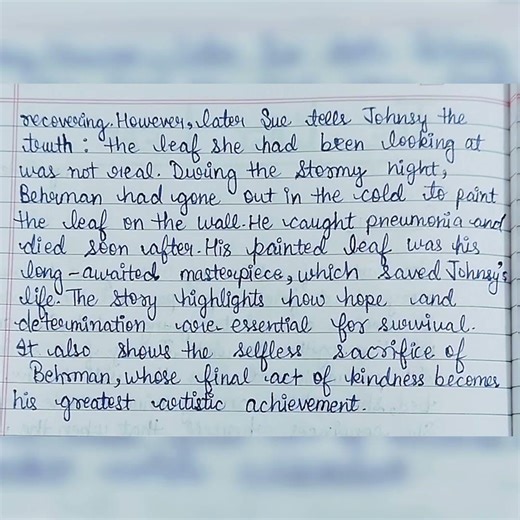 recovering. However, later Sue tells Johnsy the
truth: the leaf she had been looking at
was not real. During the stormy night,
Behrman had gone out in the cold to paint
the leaf on the wall. He caught pneumonia and
died soon after. His painted leaf was his
long-awaited masterpiece, which saved Johnsy's
life. The story highlights how hope and
determination are essential for survival.
It also shows the selfless sacrifice of
Behrman, whose final act of kindness becomes
his greatest artistic achievement.